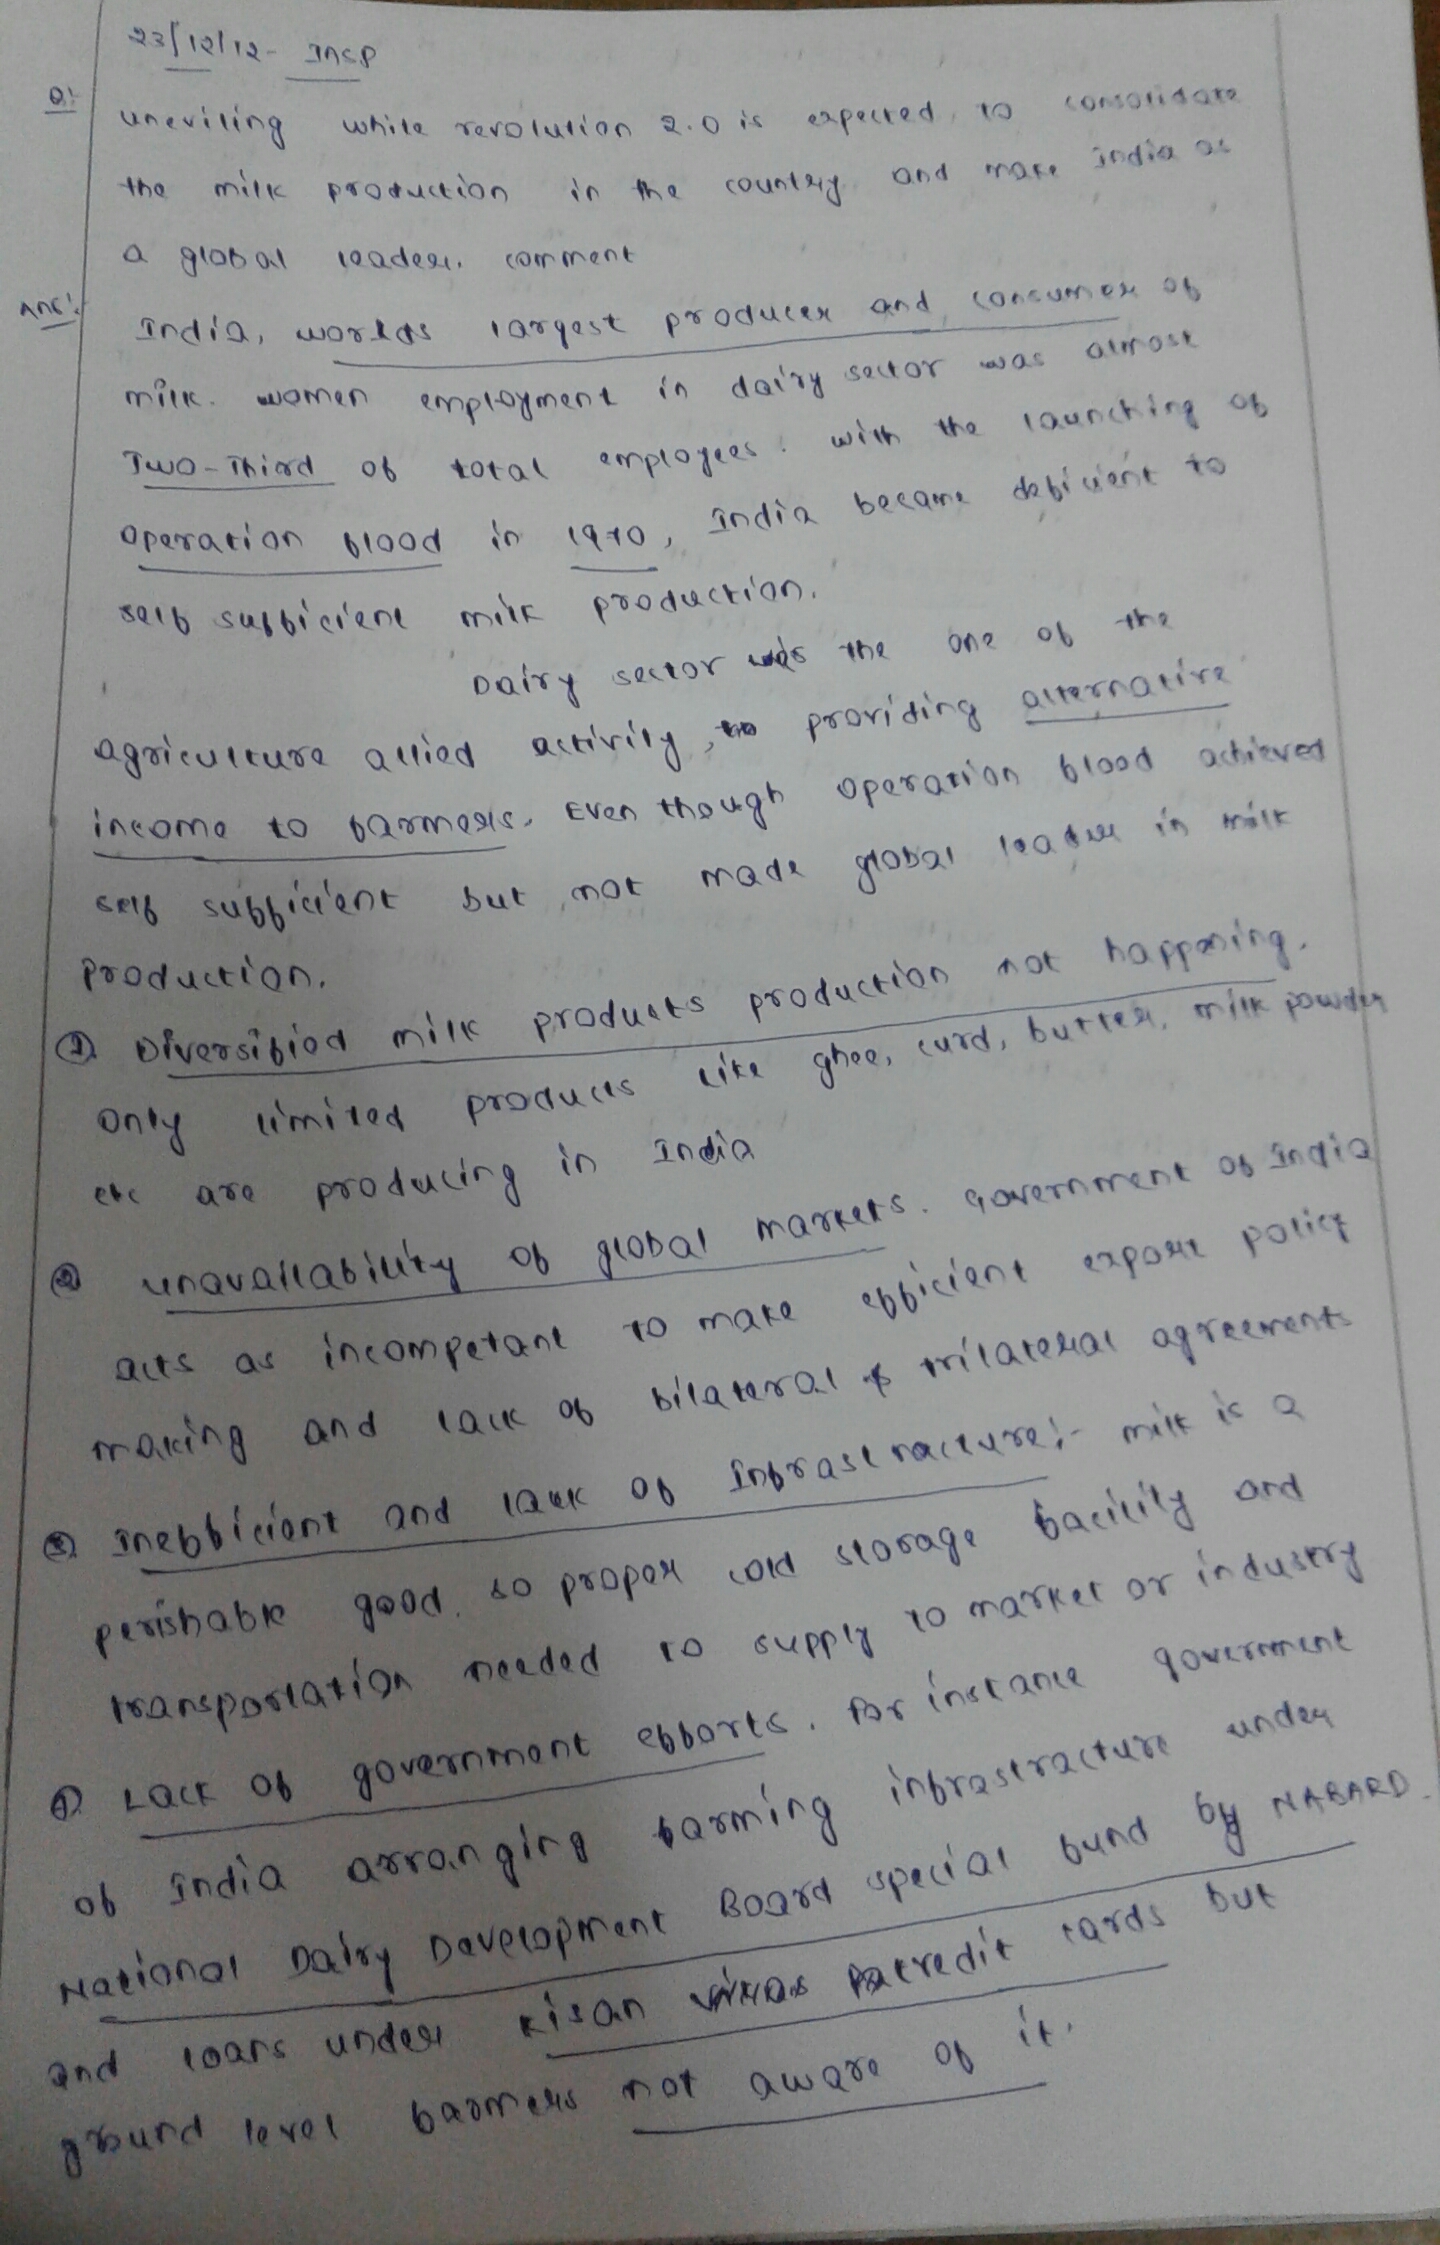 23/12/12- INSP
Q:- uneviling while revolution 2.0 is expected to consolidate
the milk production in the country and make india as
a global leader. comment
Ans:- India, worlds largest producer and consumer of
milk. women employment in dairy sector was almost
Two-Third of total employees. with the launching of
operation flood in 1970, India became deficient to
self sufficient milk production.
Dairy sector was the one of the
agriculture allied activity, providing alternative
income to farmers. Even though operation flood achieved
self sufficient but not made global leader in milk
production.
① Diversified milk products production not happening.
only limited products like ghee, curd, butter, milk powder
etc are producing in India
② unavailability of global markets. Government of India
acts as incompetant to make efficient export policy
making and lack of bilateral & trilateral agreements
③ Inefficient and lack of Infrastructure:- milk is a
perishable good. so proper cold storage facility and
transportation needed to supply to market or industry
④ Lack of government efforts. for instance government
of India arranging farming infrastracture under
National Dairy Development Board special fund by NABARD.
and loans under kisan credit cards but
ground level farmers not aware of it.